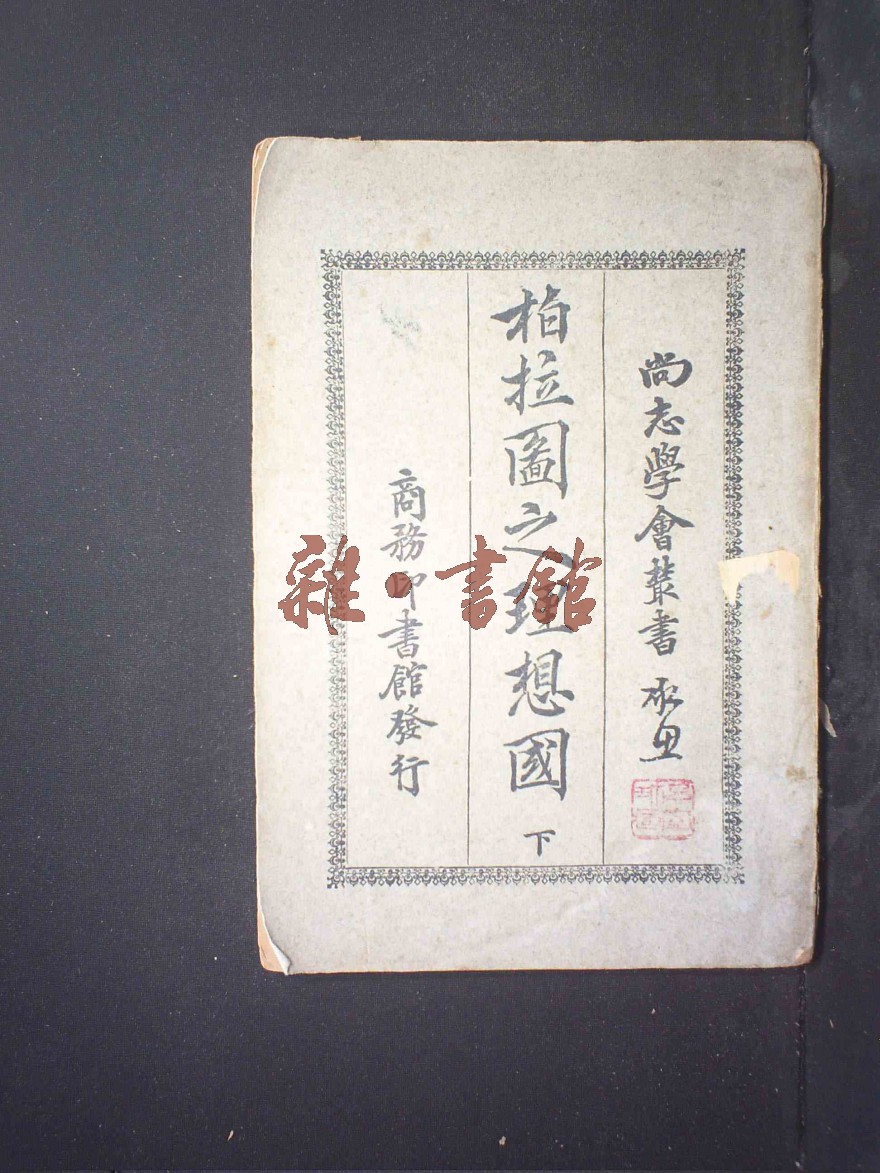 尚志學會叢書
柏拉圖之理想國
下
商務印書館發行
雜·書館